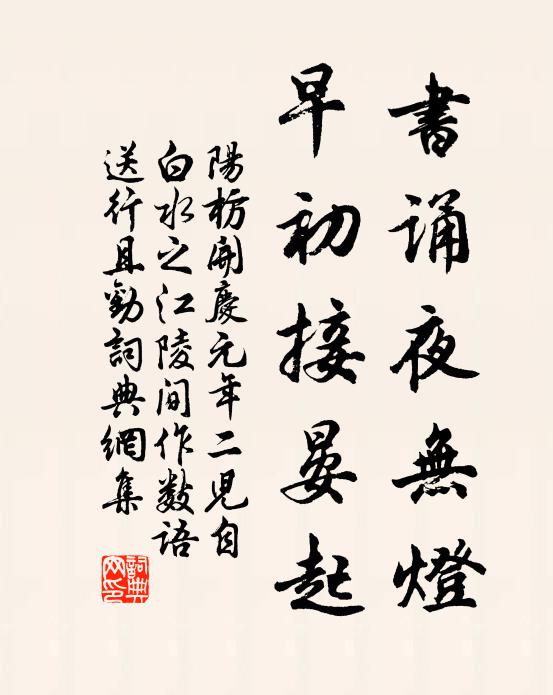 書誦夜無燈
早初接晏起
陽枋開慶元年二児自
白水之江陵间作数语
送行且勤詞典網集
詞典网印